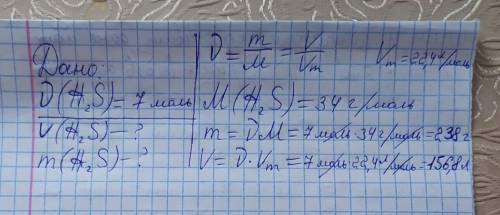 Дано:
D(H₂S) = 7 моль
V(H₂S) - ?
m(H₂S) - ?
D = m/M = V/Vm Vm = 22,4 л/моль
M(H₂S) = 34 г/моль
m = DM = 7 моль · 34 г/моль = 238 г
V = D · Vm = 7 моль · 22,4 л/моль = 156,8 л